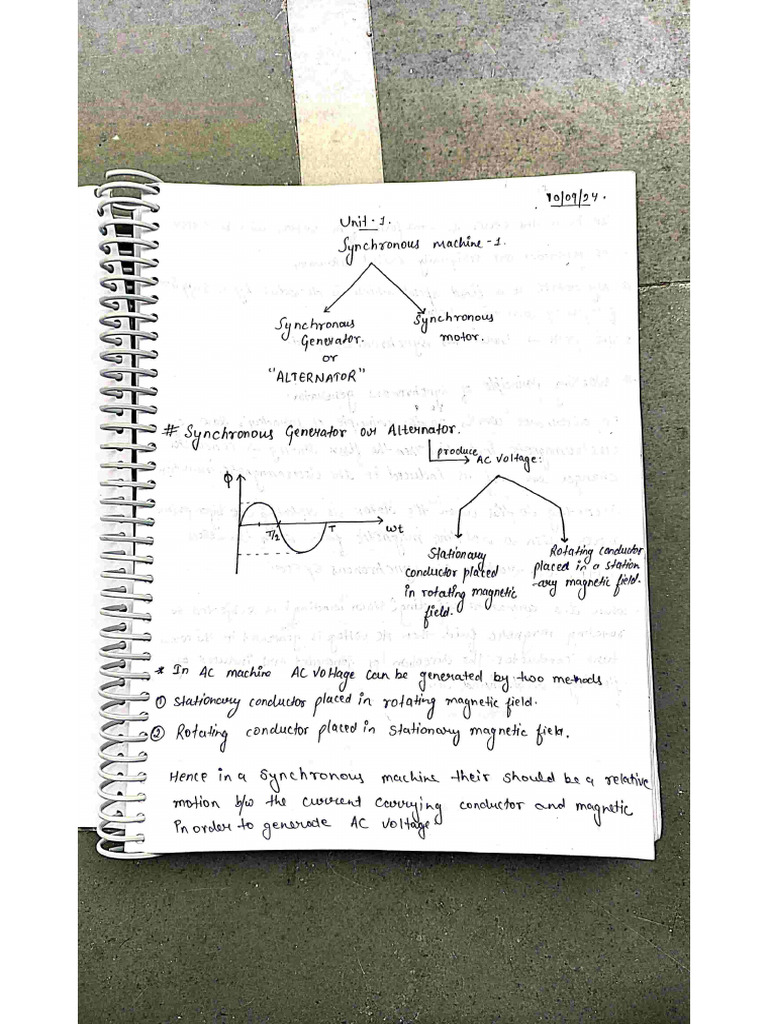 10/09/24.
Unit-1.
Synchronous machine-1.
Synchronous Generator. or "ALTERNATOR"
Synchronous motor.
# Synchronous Generator or Alternator.
produce
AC Voltage:
Φ
T/2
T
wt
Stationary
conductor placed
in rotating magnetic
field.
Rotating conductor
placed in a station
-ary magnetic field.
* In AC machine AC voltage can be generated by two methods
① Stationary conductor placed in rotating magnetic field.
② Rotating conductor placed in stationary magnetic field.
Hence in a synchronous machine their should be a relative
motion b/w the current carrying conductor and magnetic
in order to generate AC voltage